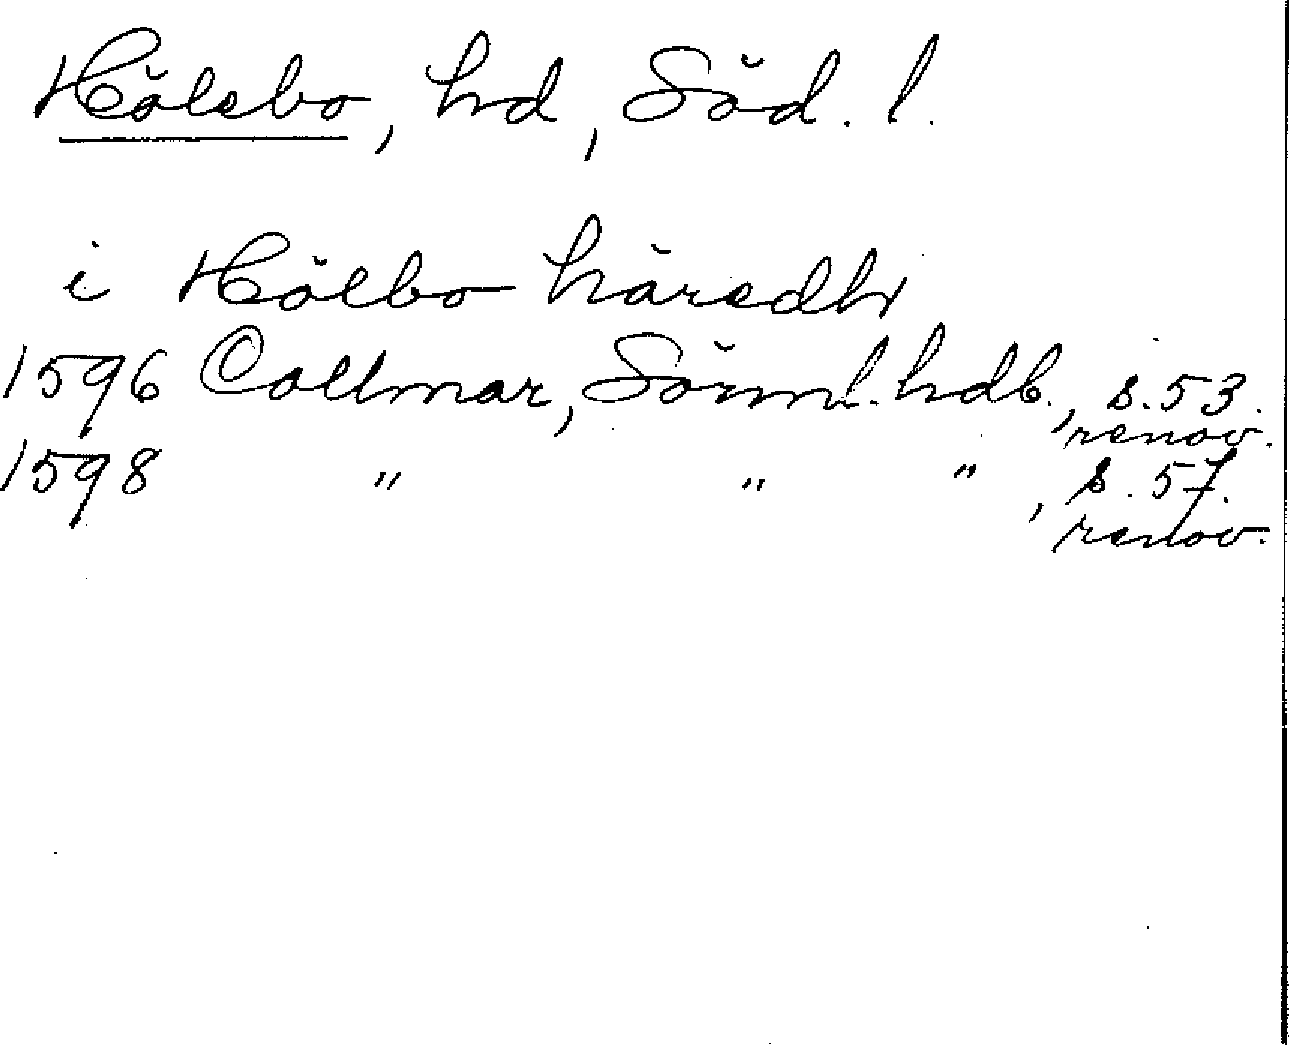 Hölebo, hd, Söd. l.
i Hölbo häredh
1596 Collmar, Sörml. hdb., s. 53.
renov.
1598 " " " , s. 57.
renov.